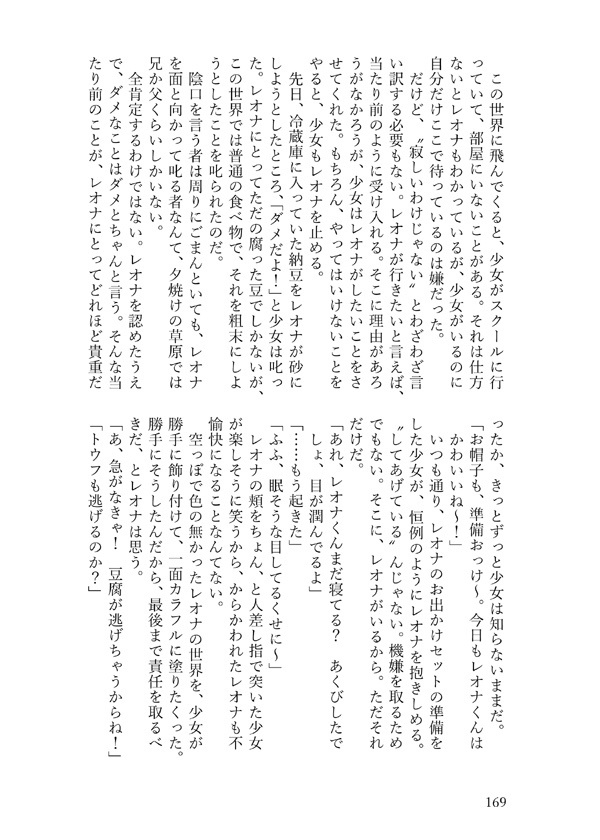 この世界に飛んでくると、少女がスクールに行
っていて、部屋にいないことがある。それは仕方
ないとレオナもわかっているが、少女がいるのに
自分だけここで待っているのは嫌だった。
だけど、〝寂しいわけじゃない〟とわざわざ言
い訳する必要もない。レオナが行きたいと言えば、
当たり前のように受け入れる。そこに理由があろ
うがなかろうが、少女はレオナがしたいことをさ
せてくれた。もちろん、やってはいけないことを
やると、少女もレオナを止める。
先日、冷蔵庫に入っていた納豆をレオナが砂に
しようとしたところ、「ダメだよ！」と少女は叱っ
た。レオナにとってただの腐った豆でしかないが、
この世界では普通の食べ物で、それを粗末にしよ
うとしたことを叱られたのだ。
陰口を言う者は周りにごまんといても、レオナ
を面と向かって叱る者なんて、夕焼けの草原では
兄か父くらいしかいない。
全肯定するわけではない。レオナを認めたうえ
で、ダメなことはダメとちゃんと言う。そんな当
たり前のことが、レオナにとってどれほど貴重だ
ったか、きっとずっと少女は知らないままだ。
「お帽子も、準備おっけ〜。今日もレオナくんは
かわいいね〜！」
いつも通り、レオナのお出かけセットの準備を
した少女が、恒例のようにレオナを抱きしめる。
〝してあげている〟んじゃない。機嫌を取るため
でもない。そこに、レオナがいるから。ただそれ
だけだ。
「あれ、レオナくんまだ寝てる？　あくびしたで
しょ、目が潤んでるよ」
「……もう起きた」
「ふふ、眠そうな目してるくせに〜」
レオナの頬をちょん、と人差し指で突いた少女
が楽しそうに笑うから、からかわれたレオナも不
愉快になることなんてない。
空っぽで色の無かったレオナの世界を、少女が
勝手に飾り付けて、一面カラフルに塗りたくった。
勝手にそうしたんだから、最後まで責任を取るべ
きだ、とレオナは思う。
「あ、急がなきゃ！　豆腐が逃げちゃうからね！」
「トウフも逃げるのか？」
169